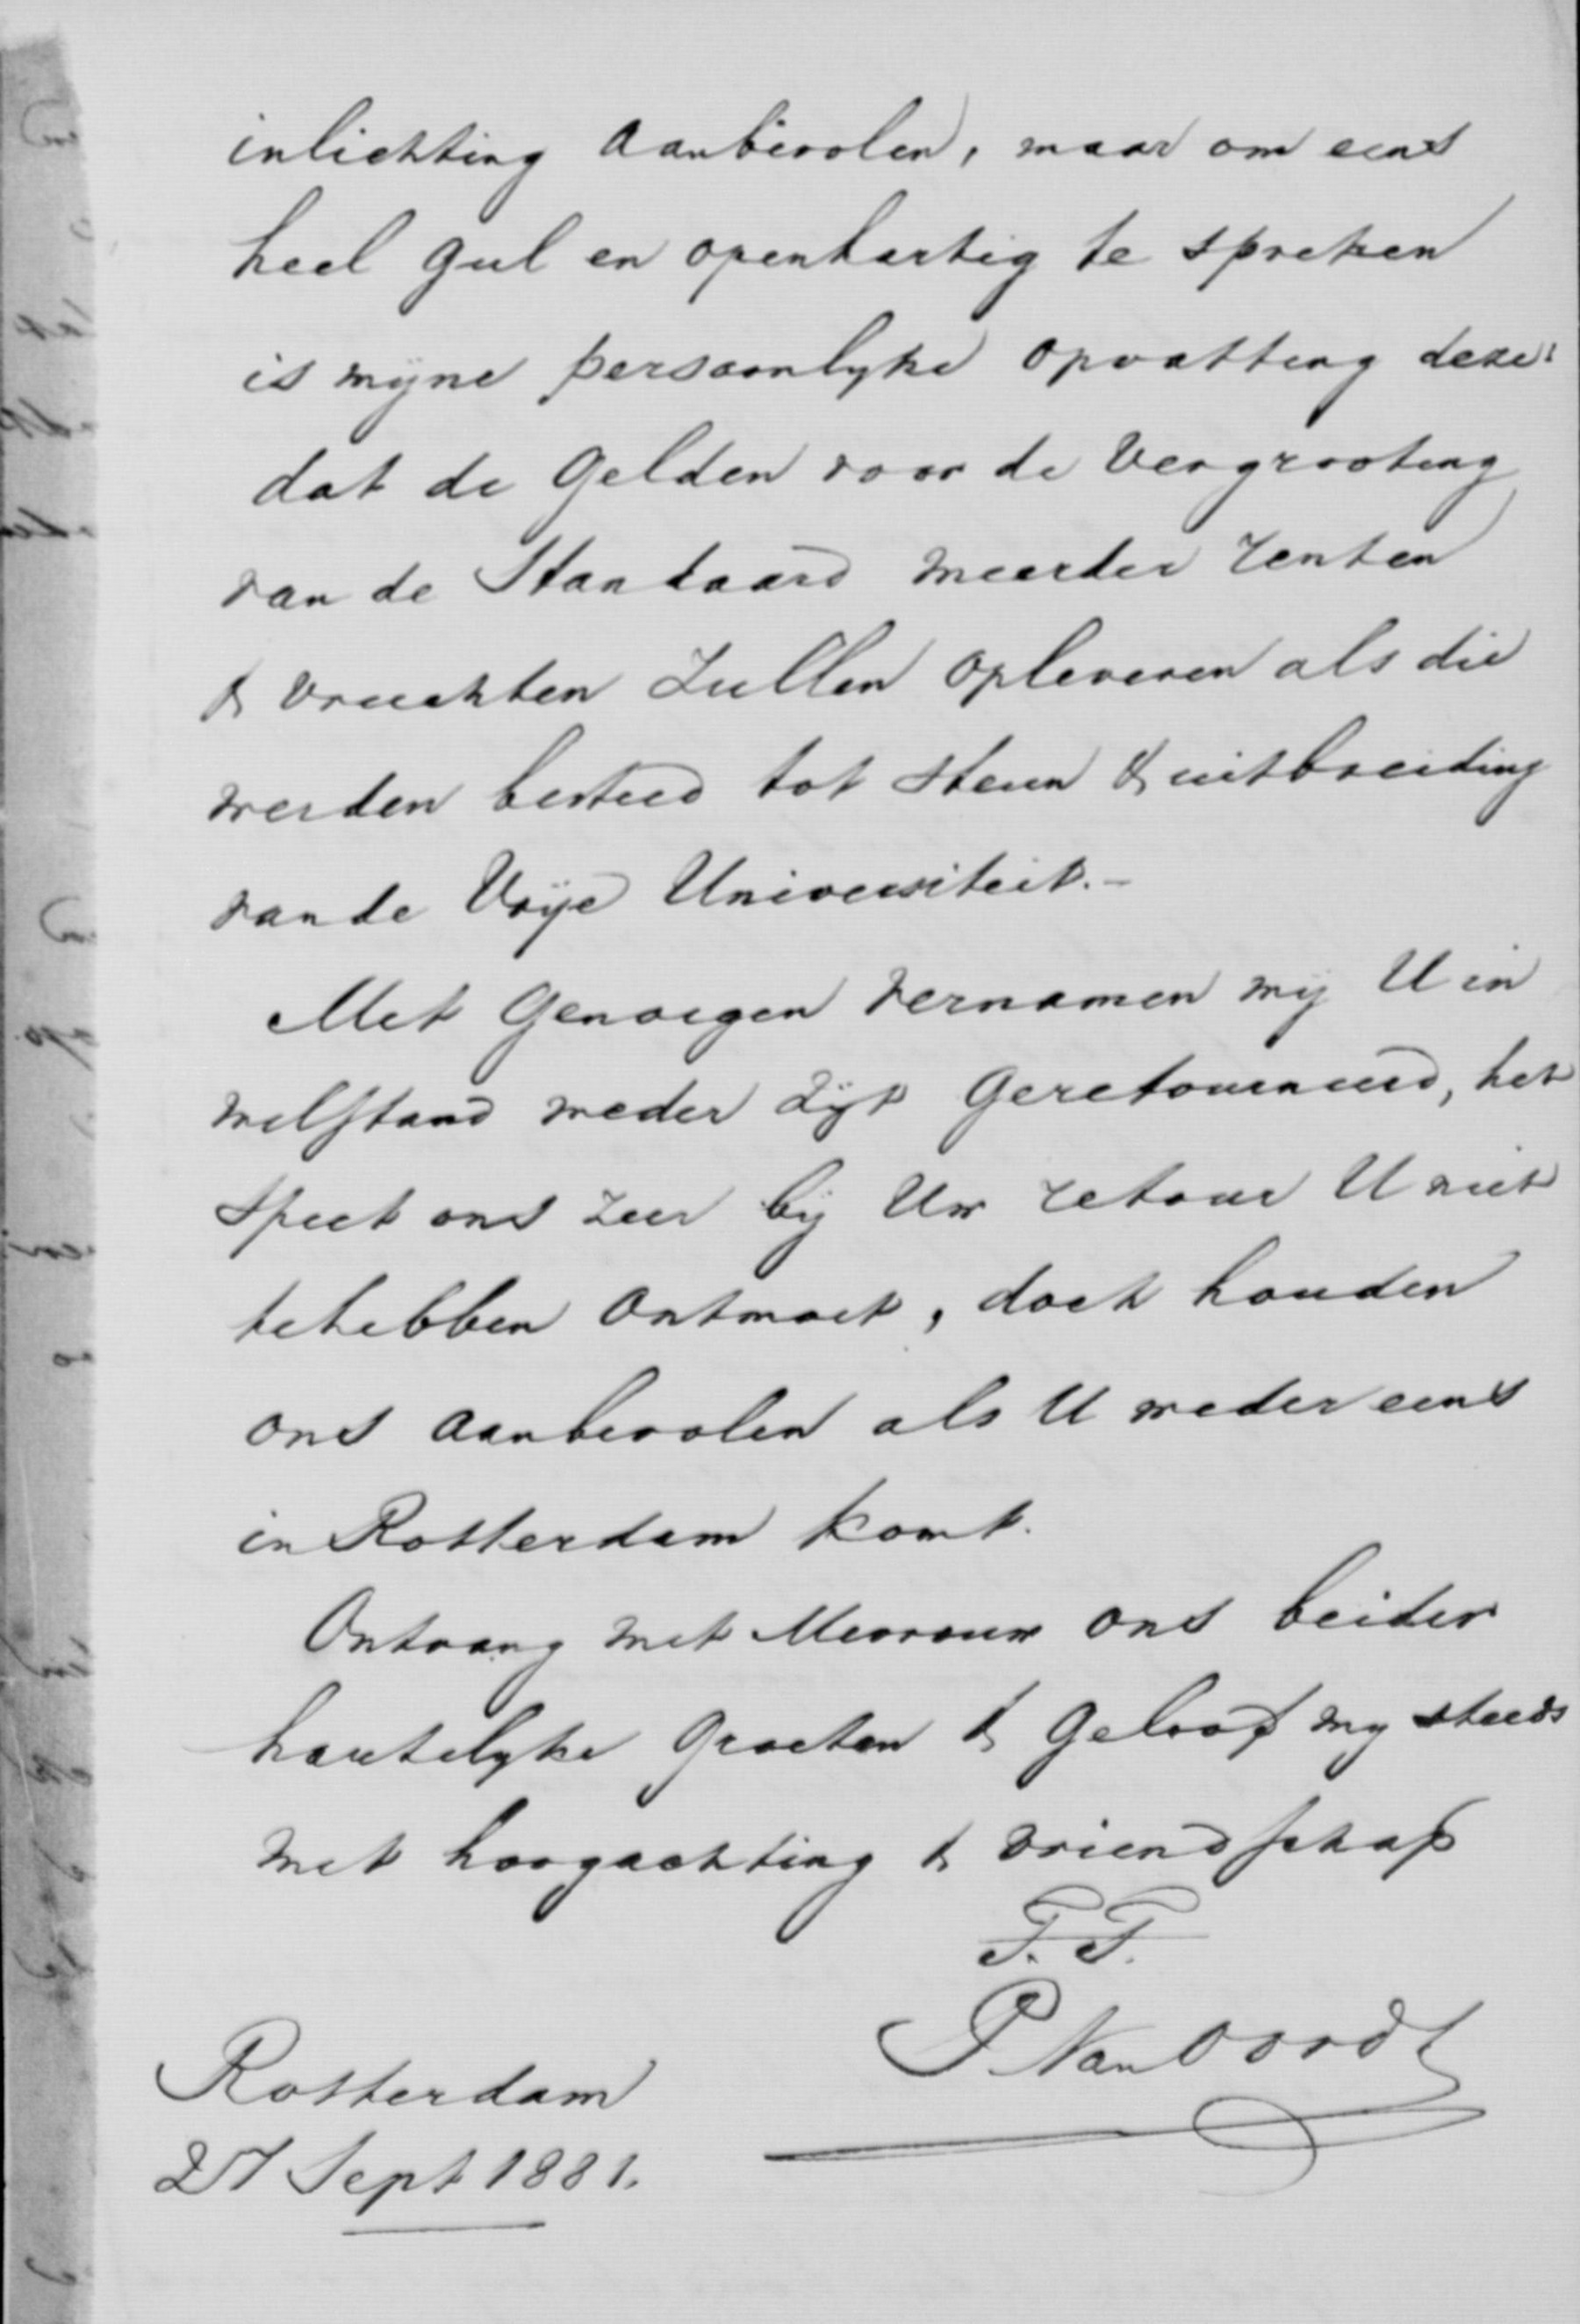 inlichting aanbevolen, maar om eens
heel gul en openhartig te spreken
is mijne persoonlyke opvatting deze:
dat de gelden voor de Vergrooting
van de Standaard meerder renten
& vruchten zullen opleveren als die
werden besteed tot steun & uitbreiding
van de Vrije Universiteit.-
Met genoegen vernamen wij U in
welstand weder zijt geretourneerd, het
speet ons zeer bij Uw retour U niet
te hebben ontmoet, doch houden
ons aanbevolen als U weder eens
in Rotterdam komt.
Ontvang met Mevrouw ons beider
hartelyke groeten & geloof my steeds
met hoogachting & vriendschap
T.T.
P. Van Oordt
Rotterdam
27 Sept 1881.